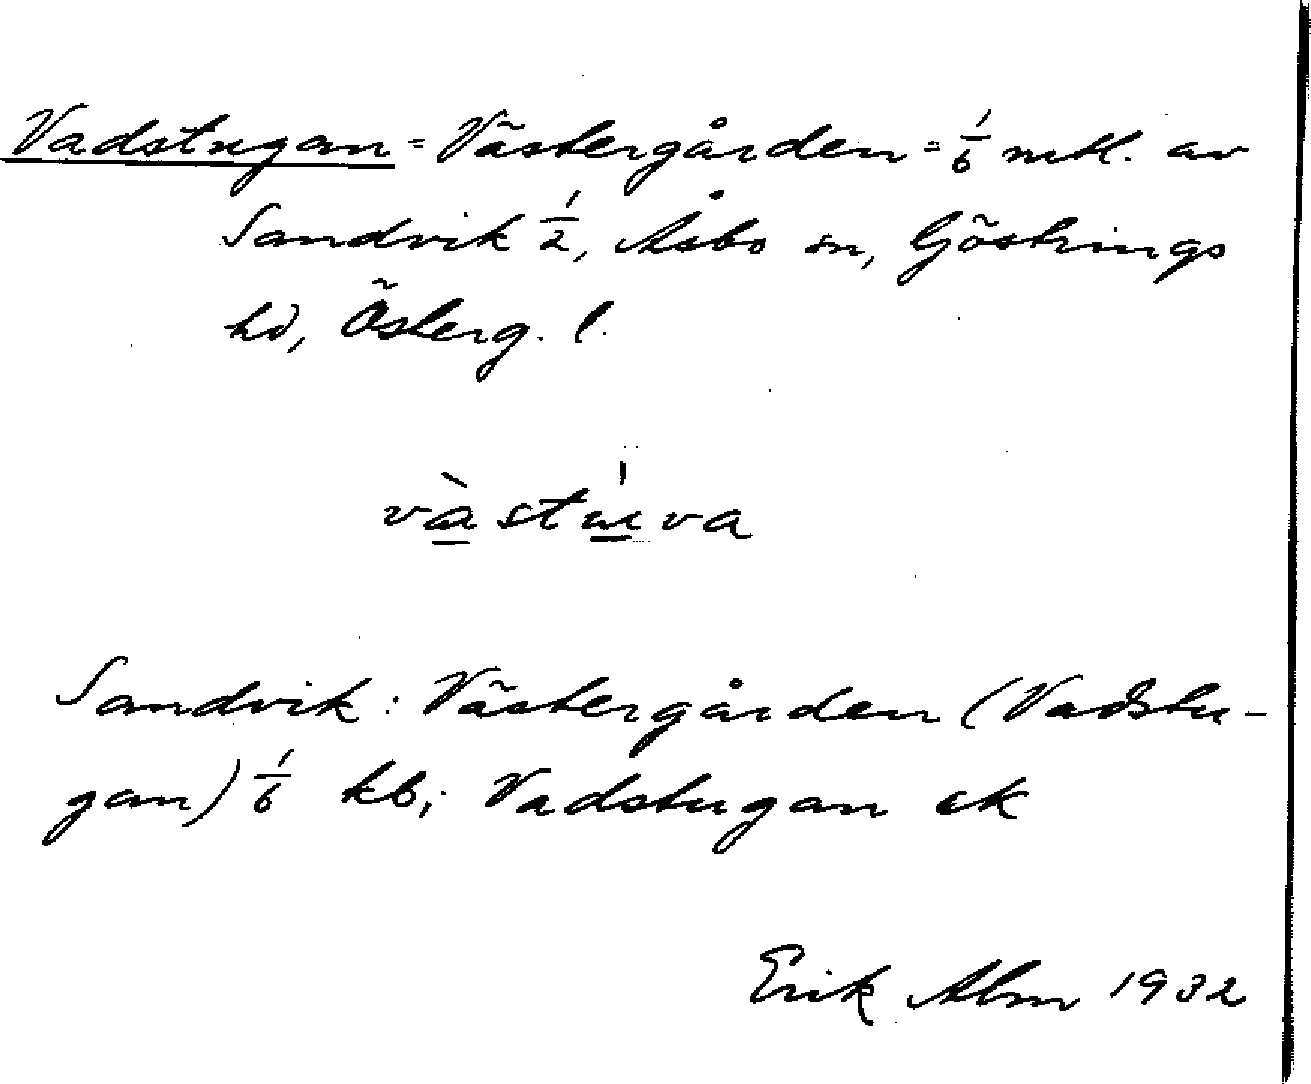 Vadstugan = Västergården = 1/6 mtl. av
Sandvik 1/2, Åsbo sn, Göstrings
hd, Österg. l.
vàstúva
Sandvik: Västergården (Vadstu-
gan) 1/6 kb; Vadstugan ek
Erik Alm 1932